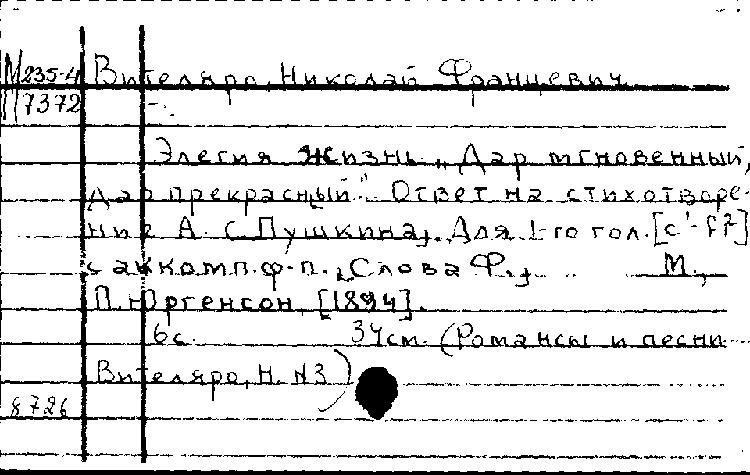 М 235-4 Вителяро, Николай Францевич
7372
Элегия жизнь „Дар мгновенный,
дар прекрасный". Ответ на стихотворе-
ние А. С. Пушкина, Для 1-го гол. [с'-f²]
с аккомп. ф-п., Слова Ф., М.,
П. Юргенсон, [1894].
6с. 34см. (Романсы и песни
Вителяро, Н. N3)
8726